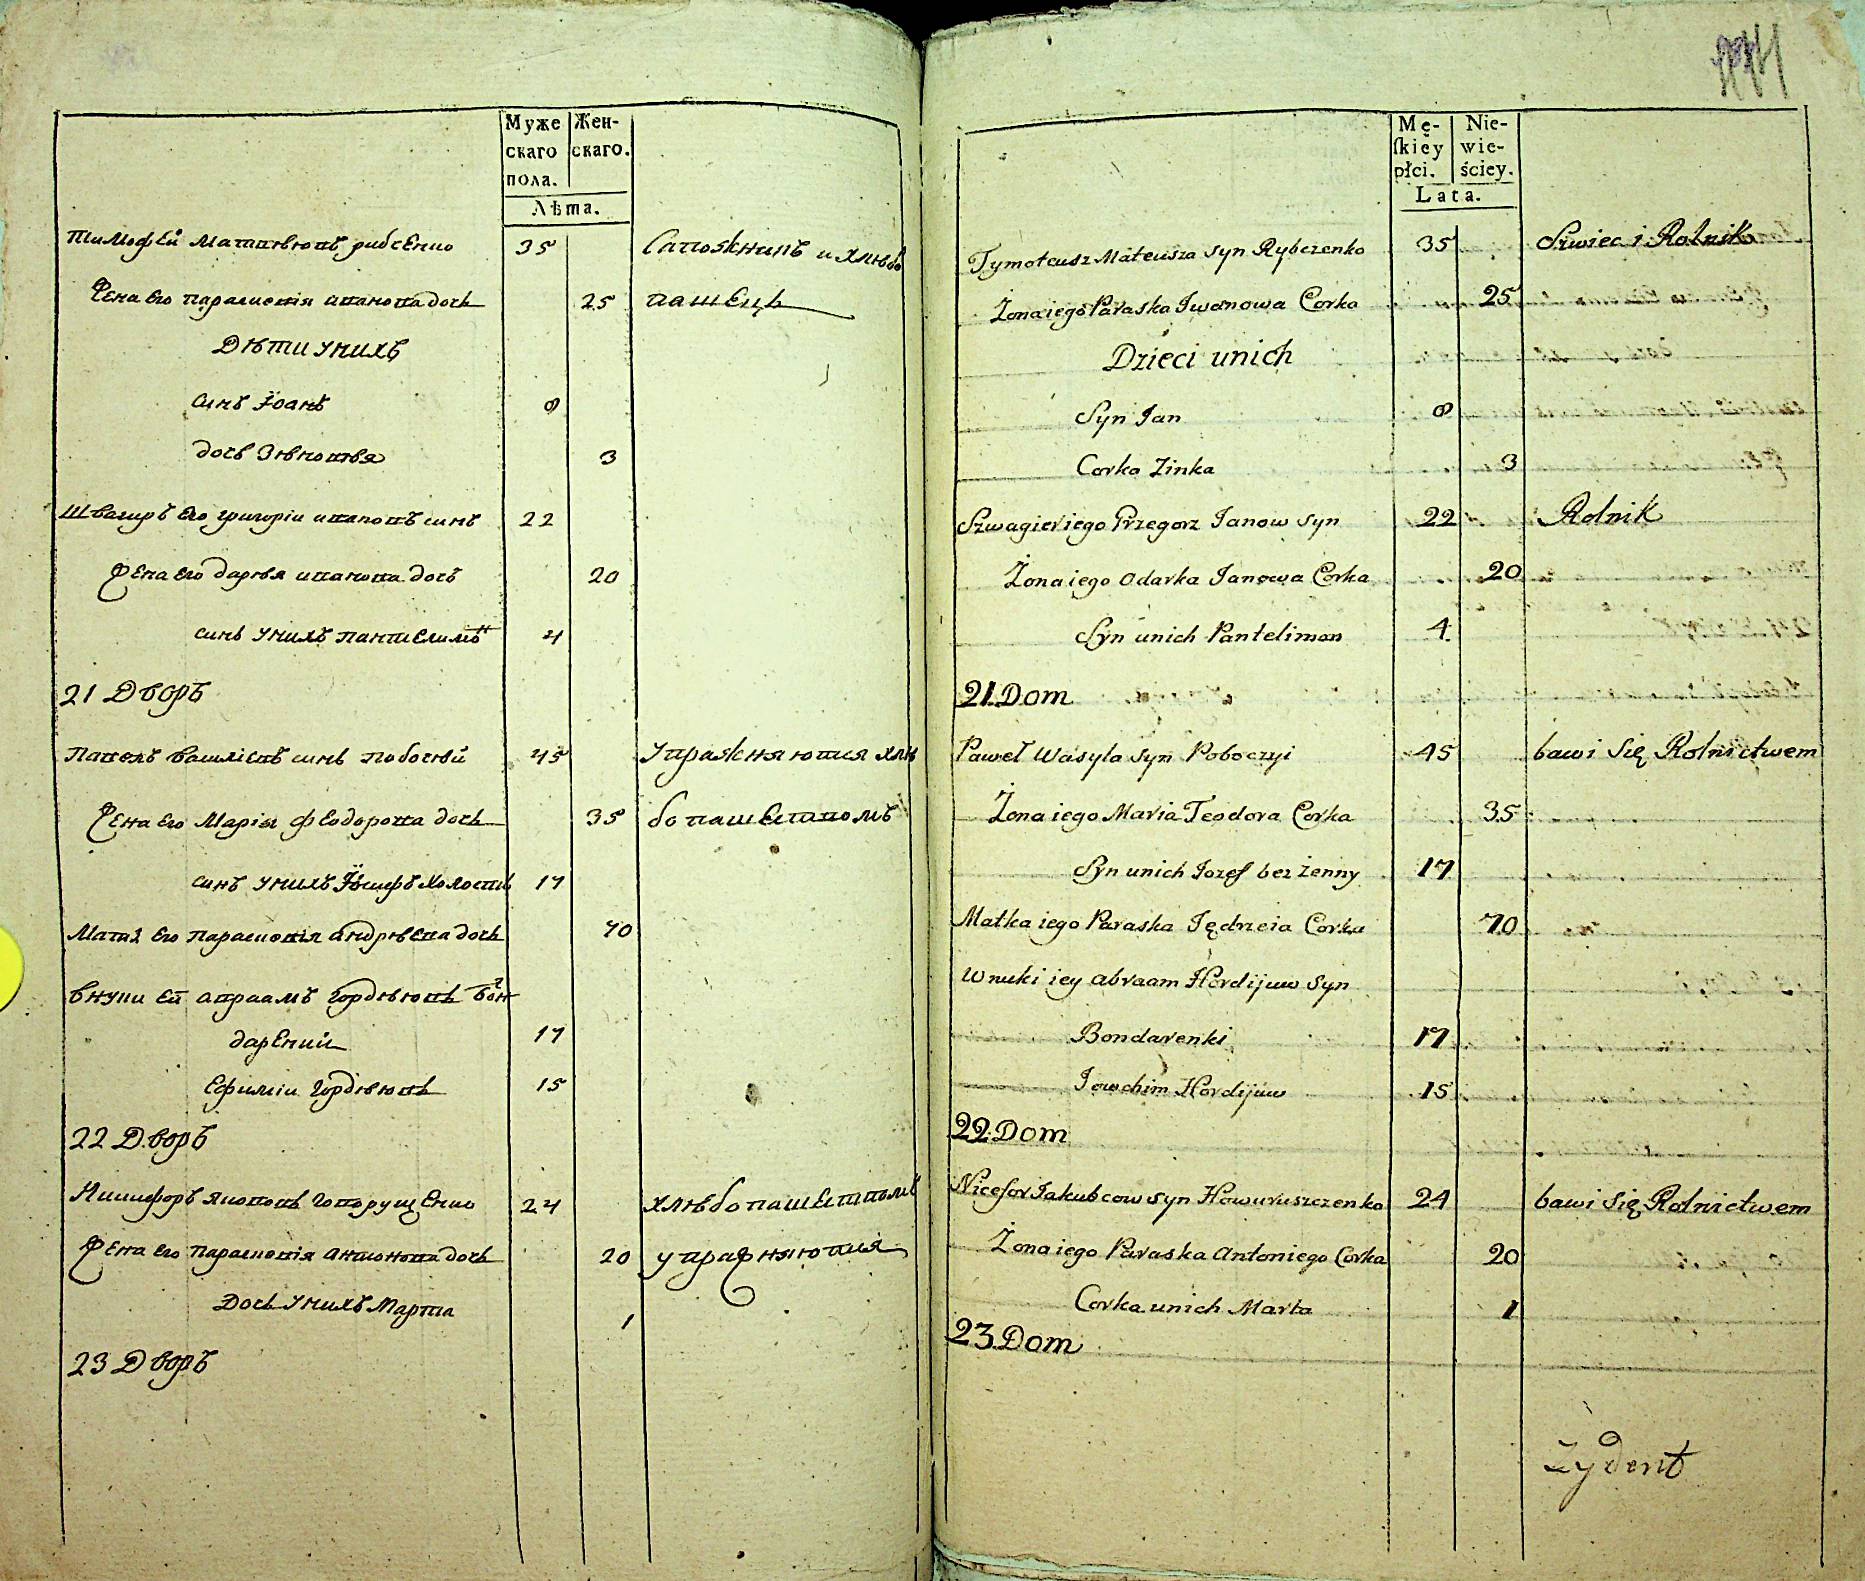 Муже
скаго
пола.
Жен-
скаго.
Лѣта.
Тимофей Матвѣювъ рибченко 35 Сапожникъ и хлѣбо
Жена его параскевія иванова дочь 25 пашецъ
Дѣти унихъ
синъ Іоанъ 8
дочь Зѣновѣя 3
Швагиръ его григоріи ивановъ синъ 22
Жена его дарѣя иванова дочъ 20
синъ унихъ пантелимънъ 4
21 Дворъ
павелъ василіевъ синъ побочѣй 45 упражняются хлѣ
Жена его Марія феодорова дочь 35 бопашествомъ
синъ унихъ Іосифъ холостій 17
Мати его параскевія андрѣева дочь 70
внуки ей авраамъ гордѣювъ бон
даренки 17
Ефиміи гордѣювъ 15
22 Дворъ
Никифоръ яковъвъ говорущенко 24 хлѣбопашествомъ
Жена его параскевія антонова дочь 20 упражняются
Дочь унихъ Марта 1
23 Дворъ
Mę-
ſkiey
płci.
Nie-
wie-
ściey.
Lata.
Tymoteusz Mateusza syn Rybczenko 35 Szwiec i Rolnik
Żona iego Paraska Iwanowa Corka 25
Dzieci unich
Syn Jan 8
Corka Zinka 3
Szwagier iego Grzegorz Janow syn 22 Rolnik
Żona iego Odarka Janowa Corka 20
Syn unich Pantelimon 4
21 Dom
Paweł Wasyla syn Poboczyi 45 bawi się Rolnictwem
Żona iego Maria Teodora Corka 35
Syn unich Jozef bez żenny 17
Matka iego Paraska Jędrzeia Corka 70
Wnuki iey Abraam Hordijuw syn
Bondarenki 17
Jowchim Hordijuw 15
22 Dom
Nicefor Jakubcow syn Howuruszczenko 24 bawi się Rolnictwem
Żona iego Paraska Antoniego Corka 20
Corka unich Marta 1
23 Dom